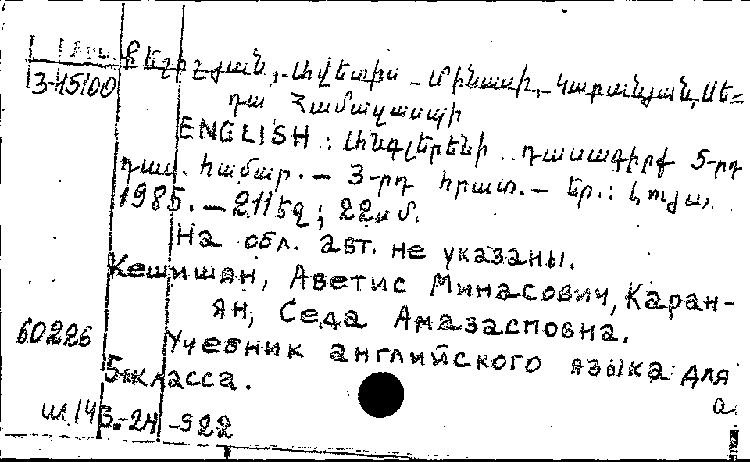 Քեշիշյան, Ավետիս Մինասի, Կարանյան, Սե=
3-45100
դա Համազասպի
ENGLISH : Անգլերենի դասագիրք 5-րդ
դաս. համար. — 3-րդ հրատ. — Եր.: Լույս,
1985. — 211 եզ; 22 սմ.
На обл. авт. не указаны.
Кешишян, Аветис Минасович, Каран-
ян, Седа Амазасповна.
60226
Учебник английского языка для
5 класса.
а.
3.-2Н -922